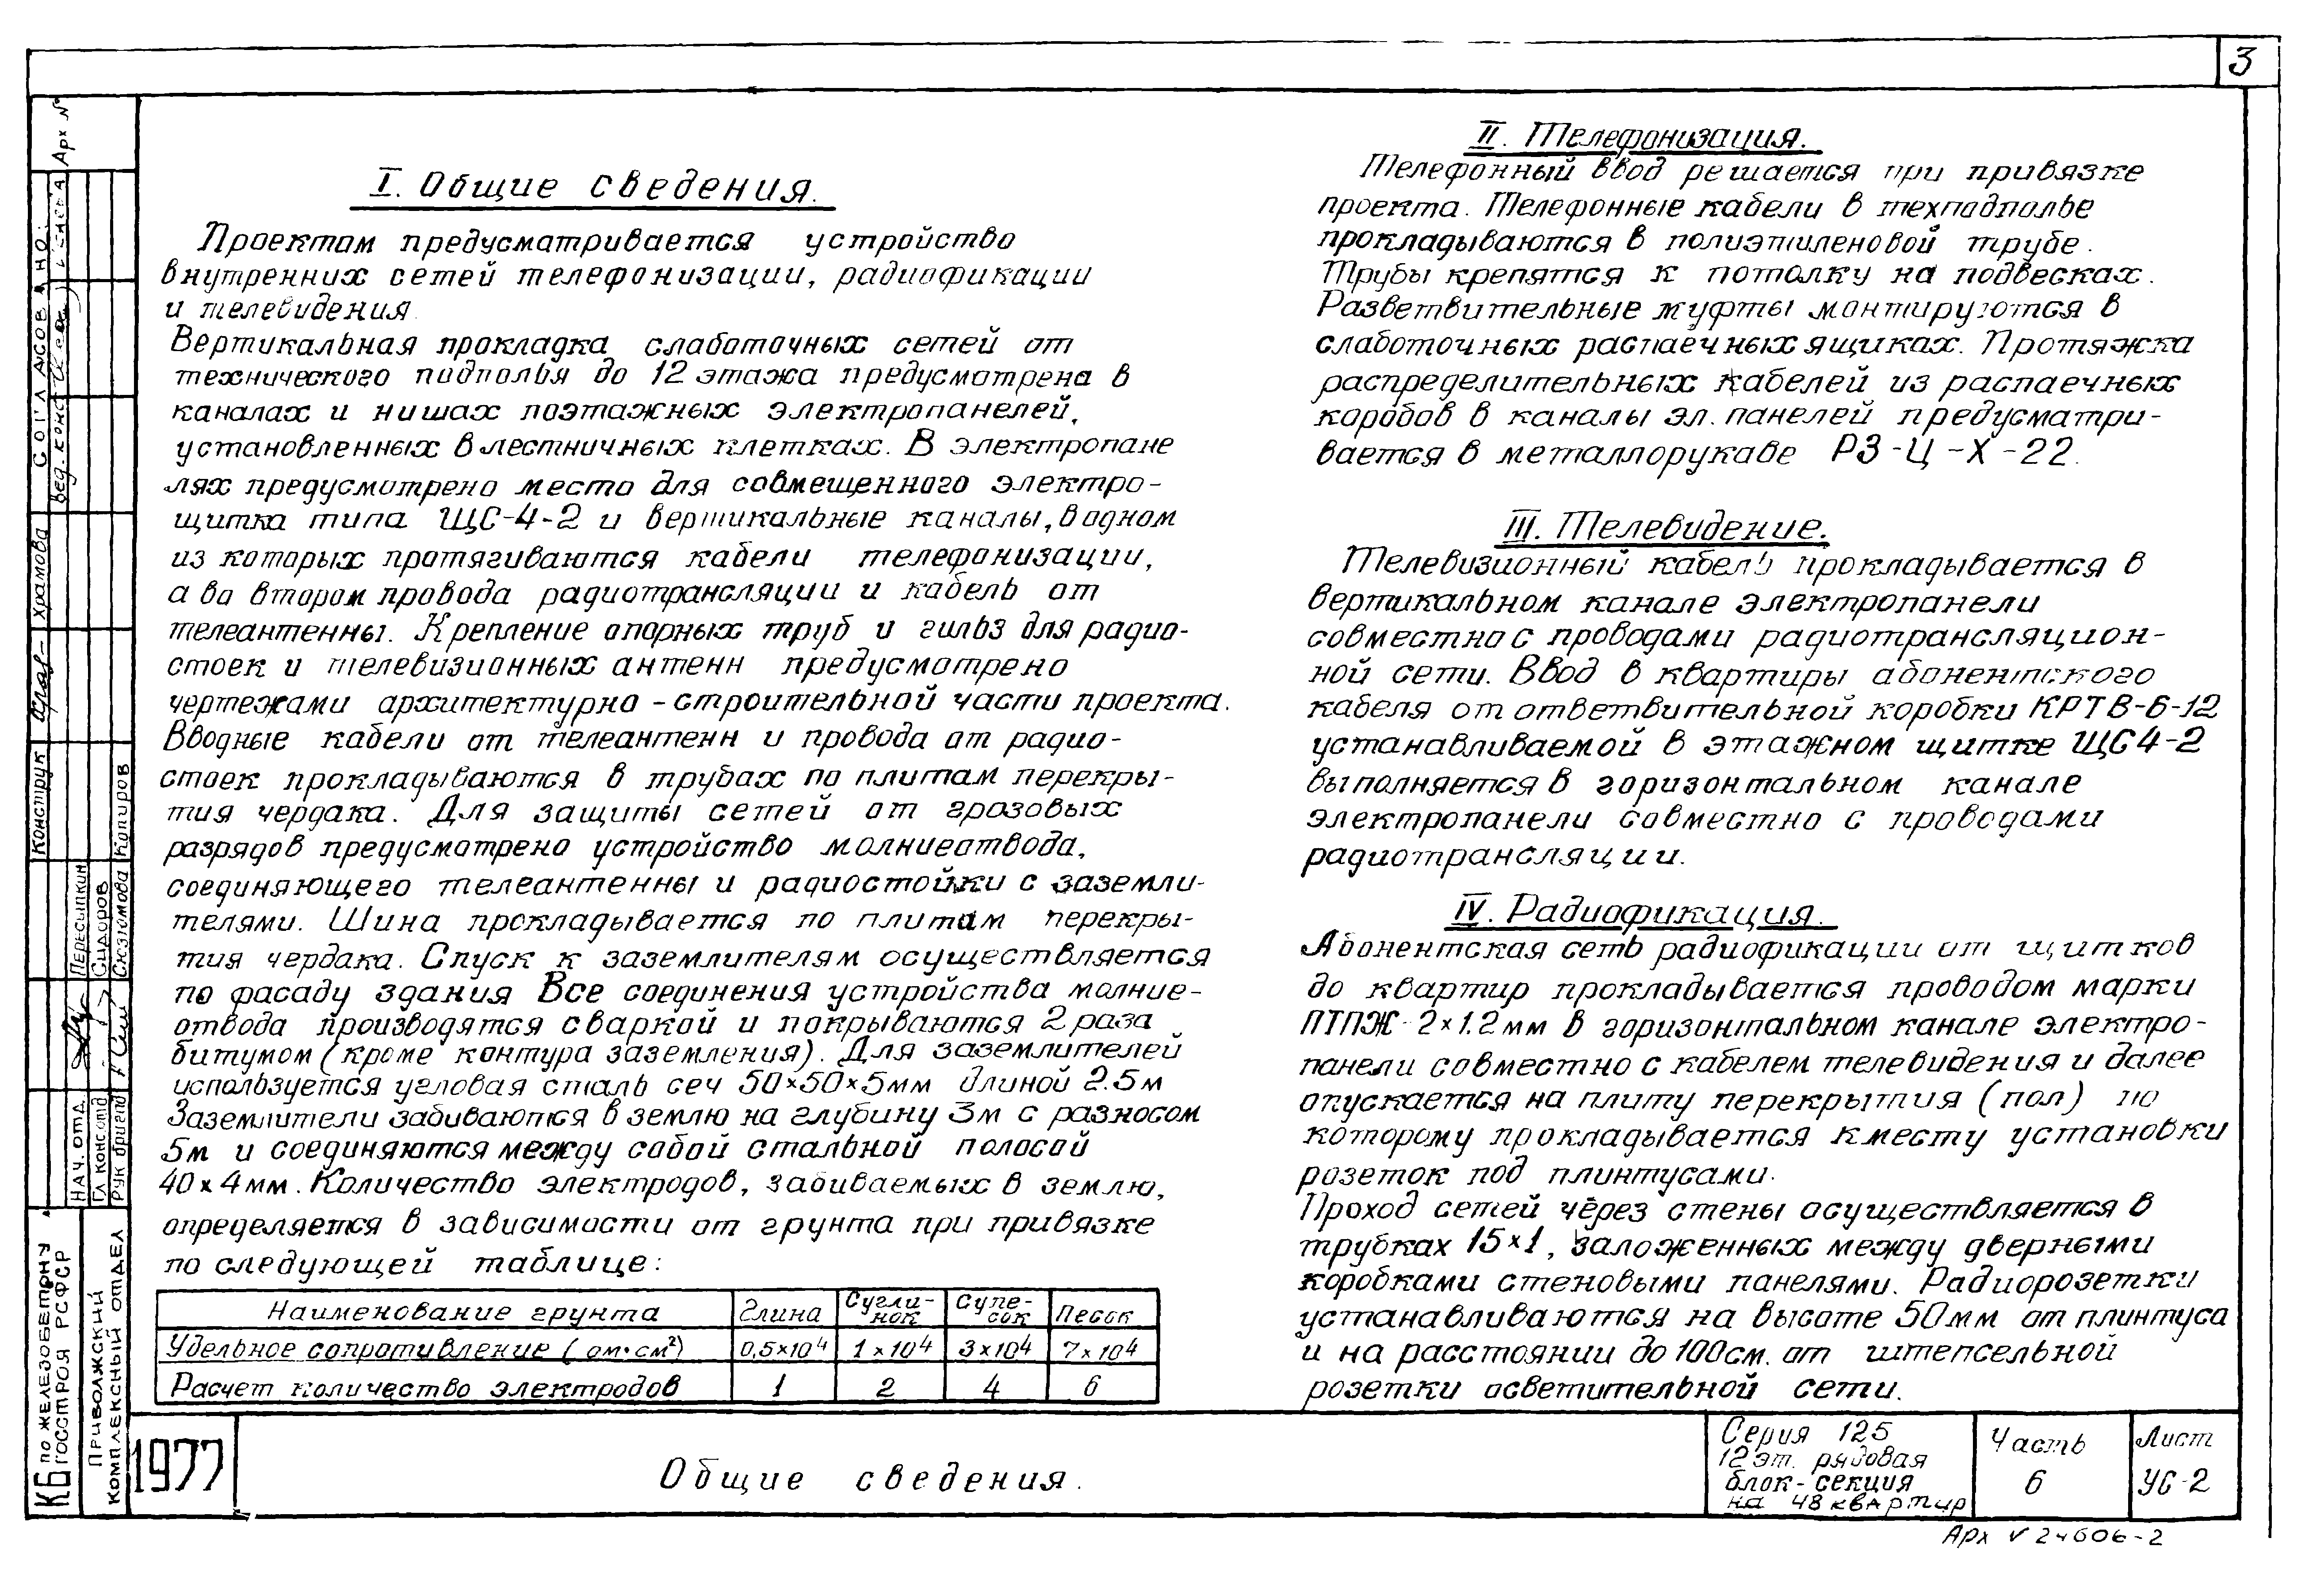 3
I. Общие сведения.
Проектом предусматривается устройство
внутренних сетей телефонизации, радиофикации
и телевидения.
Вертикальная прокладка слаботочных сетей от
технического подполья до 12 этажа предусмотрена в
каналах и нишах поэтажных электропанелей,
установленных в лестничных клетках. В электропане
лях предусмотрено место для совмещенного электро-
щитка типа ЩС-4-2 и вертикальные каналы, в одном
из которых протягиваются кабели телефонизации,
а во втором провода радиотрансляции и кабель от
телеантенны. Крепление опорных труб и гильз для радио-
стоек и телевизионных антенн предусмотрено
чертежами архитектурно-строительной части проекта.
Вводные кабели от телеантенн и провода от радио-
стоек прокладываются в трубах по плитам перекры-
тия чердака. Для защиты сетей от грозовых
разрядов предусмотрено устройство молниеотвода,
соединяющего телеантенны и радиостойки с заземли-
телями. Шина прокладывается по плитам перекры-
тия чердака. Спуск к заземлителям осуществляется
по фасаду здания Все соединения устройства молние-
отвода производятся сваркой и покрываются 2 раза
битумом (кроме контура заземления). Для заземлителей
используется угловая сталь сеч 50×50×5мм длиной 2.5м
Заземлители забиваются в землю на глубину 3м с разносом
5м и соединяются между собой стальной полосой
40×4мм. Количество электродов, забиваемых в землю,
определяется в зависимости от грунта при привязке
по следующей таблице:
Наименование грунта Глина Сугли- Супе- Песок
нок сок
Удельное сопротивление (ом·см²) 0,5×10⁴ 1×10⁴ 3×10⁴ 7×10⁴
Расчет количество электродов 1 2 4 6
II. Телефонизация.
Телефонный ввод решается при привязке
проекта. Телефонные кабели в техподполье
прокладываются в полиэтиленовой трубе.
Трубы крепятся к потолку на подвесках.
Разветвительные муфты монтируются в
слаботочных распаечных ящиках. Протяжка
распределительных кабелей из распаечных
коробов в каналы эл. панелей предусматри-
вается в металлорукаве РЗ-Ц-Х-22.
III. Телевидение.
Телевизионный кабель прокладывается в
вертикальном канале электропанели
совместно с проводами радиотрансляцион-
ной сети. Ввод в квартиры абонентского
кабеля от ответвительной коробки КРТВ-6-12
устанавливаемой в этажном щитке ЩС4-2
выполняется в горизонтальном канале
электропанели совместно с проводами
радиотрансляции.
IV. Радиофикация.
Абонентская сеть радиофикации от щитков
до квартир прокладывается проводом марки
ПТПЖ-2×1.2мм в горизонтальном канале электро-
панели совместно с кабелем телевидения и далее
опускается на плиту перекрытия (пол) по
которому прокладывается к месту установки
розеток под плинтусами.
Проход сетей через стены осуществляется в
трубках 15×1, заложенных между дверными
коробками стеновыми панелями. Радиорозетки
устанавливаются на высоте 50мм от плинтуса
и на расстоянии до 100см. от штепсельной
розетки осветительной сети.
1977
Общие сведения.
Серия 125
12 эт. рядовая
блок-секция
на 48 квартир
Часть
6
Лист
УС-2
Арх № 24606-2
Арх №
СОГЛАСОВАНО:
Вед. конс
Конструк Храмова
Копиров
Нач. отд. Пересыпкин
Гл консотд Сидоров
Рук бригад Сюзюмова
КБ по железобетону
Госстроя РСФСР
Приволжский
комплексный отдел